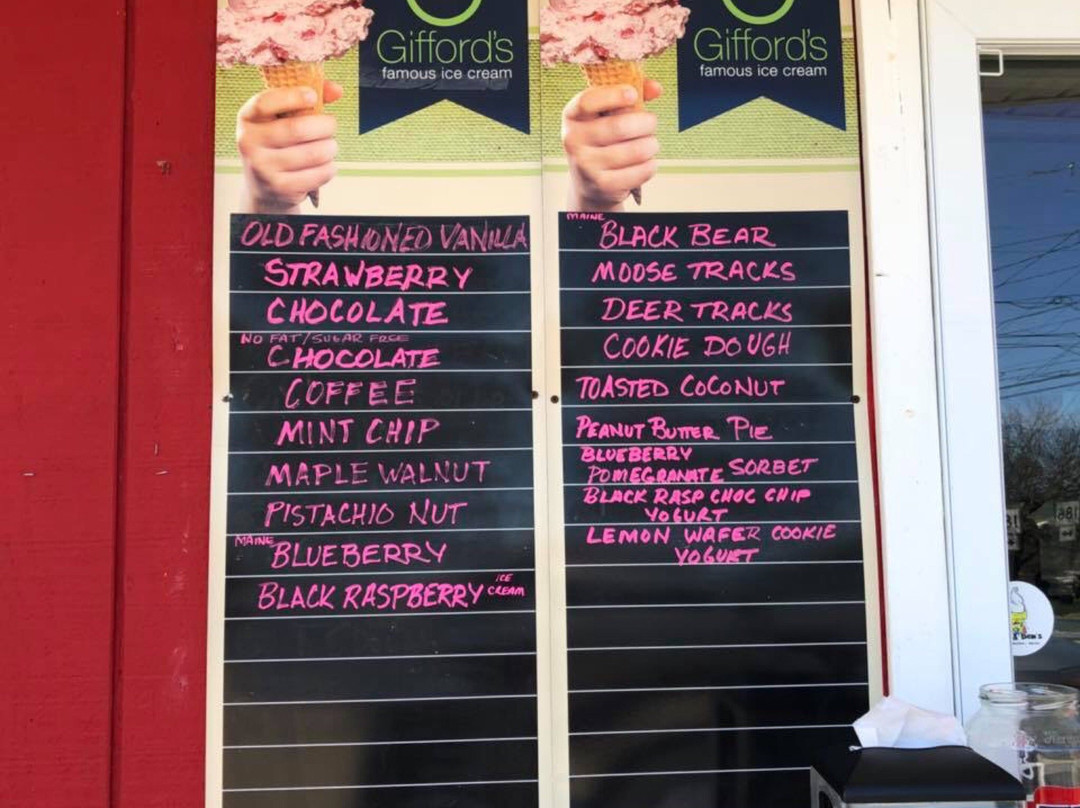 Gifford's
famous ice cream
OLD FASHIONED VANILLA
STRAWBERRY
CHOCOLATE
NO FAT/SUGAR FREE
CHOCOLATE
COFFEE
MINT CHIP
MAPLE WALNUT
PISTACHIO NUT
MAINE
BLUEBERRY
BLACK RASPBERRY ICE
CREAM
Gifford's
famous ice cream
MAINE
BLACK BEAR
MOOSE TRACKS
DEER TRACKS
COOKIE DOUGH
TOASTED COCONUT
PEANUT BUTTER PIE
BLUEBERRY
POMEGRANATE SORBET
BLACK RASP CHOC CHIP
YOGURT
LEMON WAFER COOKIE
YOGURT